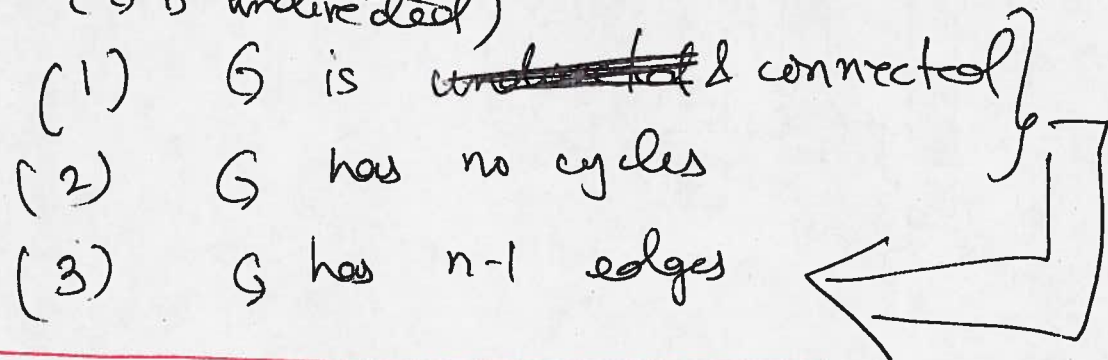 (G is undirected)
(1) G is & connected
(2) G has no cycles
(3) G has n-1 edges